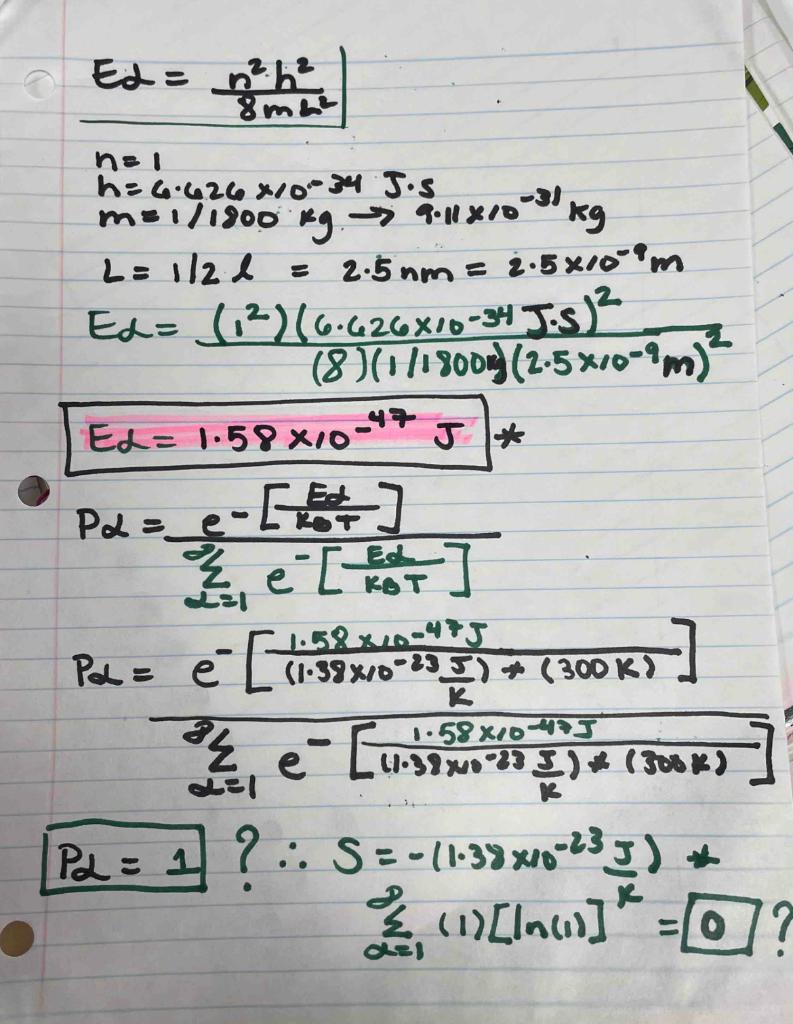 Eα = n²h² / 8mL²
n = 1
h = 6.626 x10-34 J.s
m = 1/1800 kg → 9.11 x10-31 kg
L = 1/2 l = 2.5 nm = 2.5 x10-9 m
Eα = (1²)(6.626x10-34 J.s)² / (8)(1/1800kg)(2.5x10-9 m)²
Eα = 1.58 x10-47 J *
Pα = e-[Eα / KBT] / ∞Σα=1 e-[Eα / KBT]
Pα = e-[1.58 x10-47 J / (1.38x10-23 J/K) * (300K)] / ∞Σα=1 e-[1.58x10-47J / (1.38x10-23 J/K) * (300K)]
Pα = 1 ? ∴ S = -(1.38x10-23 J/K) *
∞Σα=1 (1)[ln(1)] = 0 ?